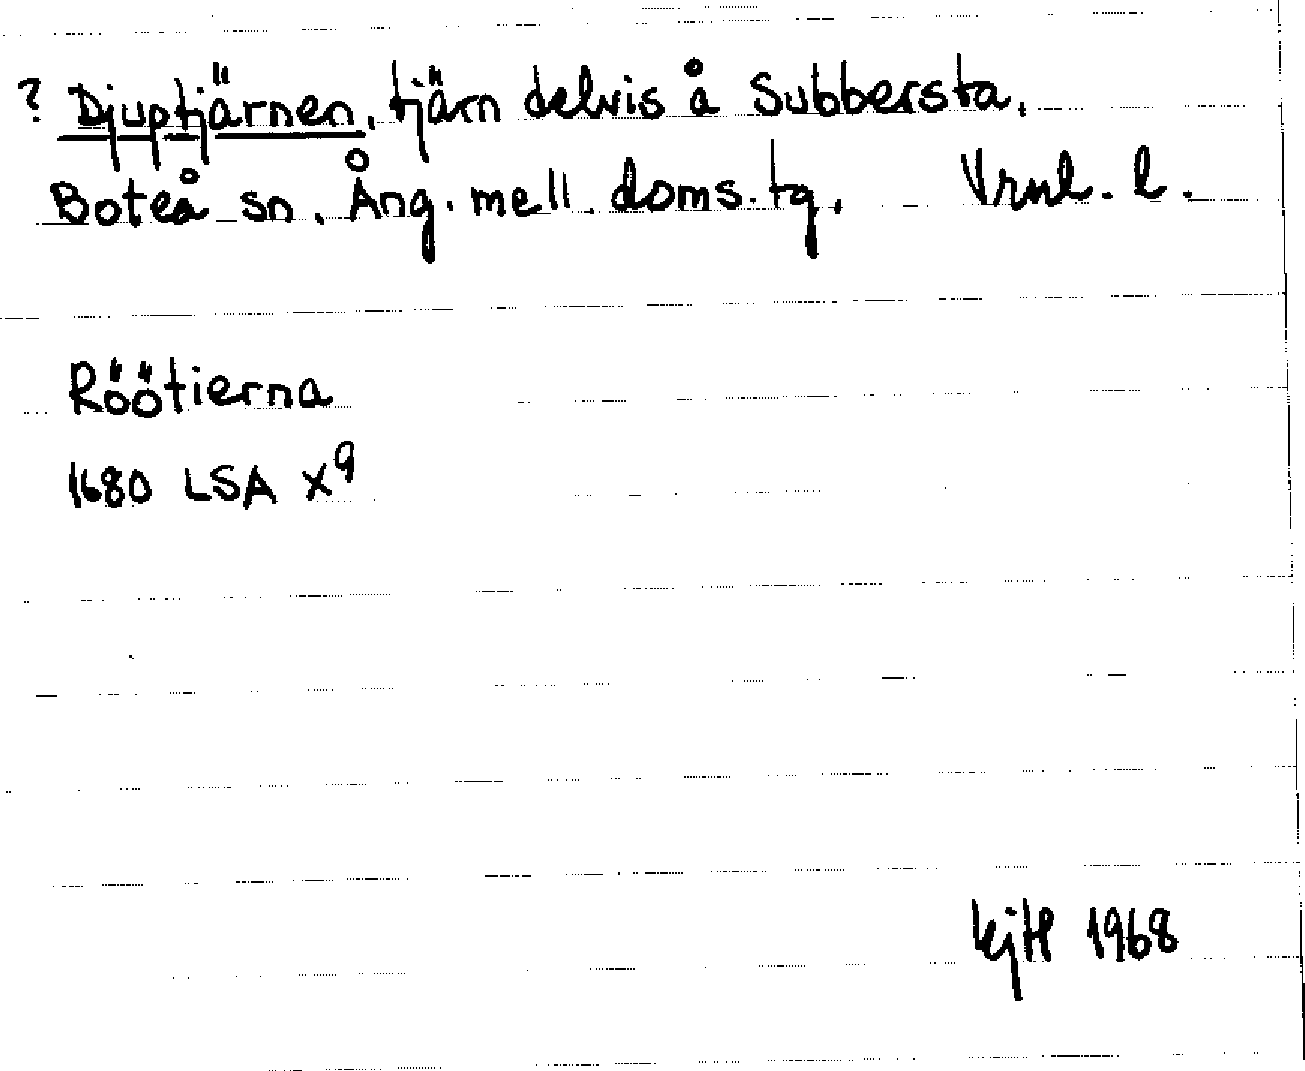 ? Djuptjärnen, tjärn delvis å Subbersta,
Boteå sn, Ång. mell. doms. tg, Vrnl. l.
Röötierna
1680 LSA X9
1968